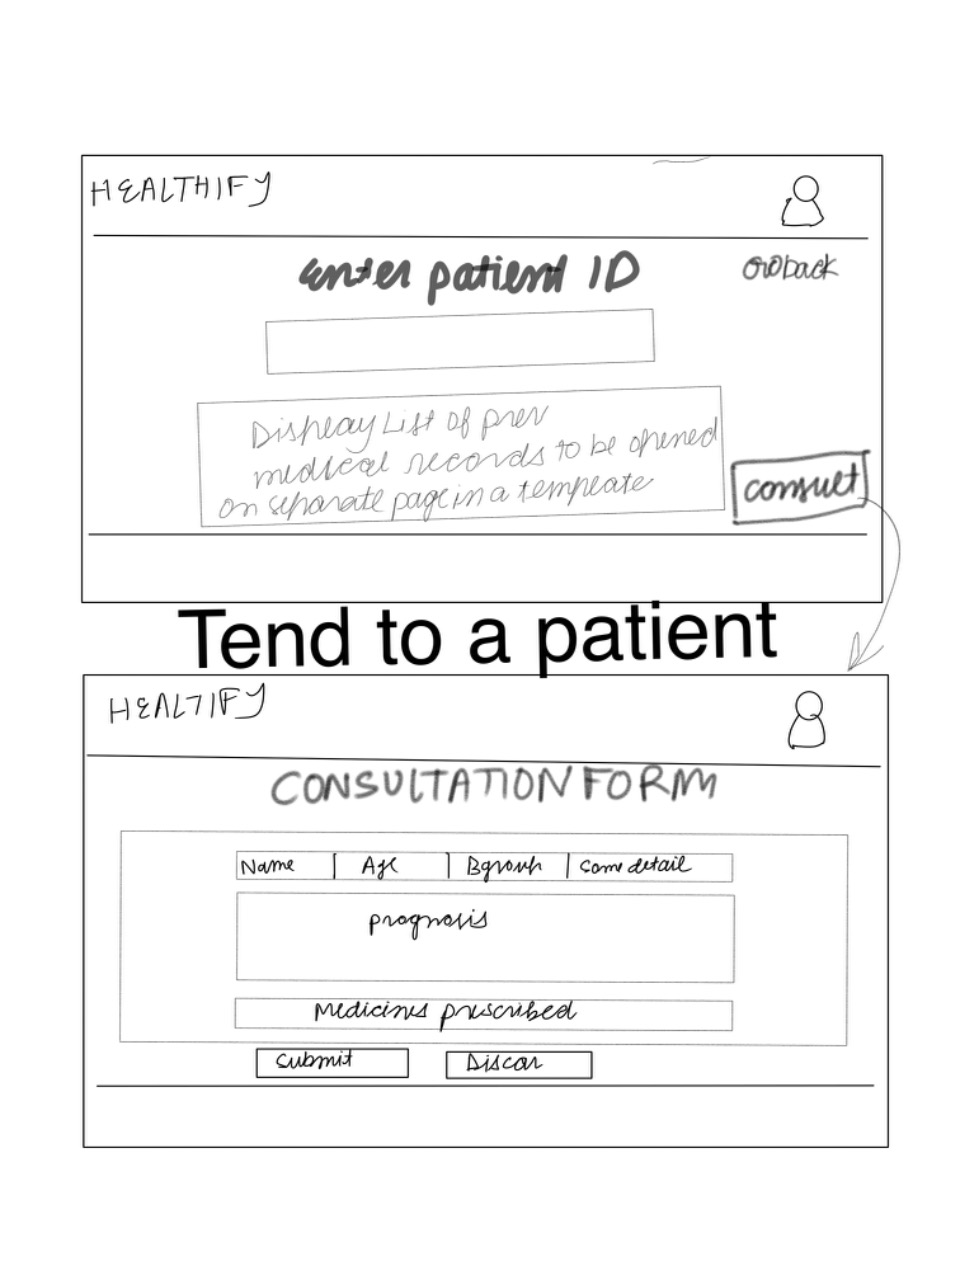 HEALTHIFY
Enter patient ID
back
Display List of prev
medical records to be opened
on separate page in a template
consult
Tend to a patient
HEALTIFY
CONSULTATION FORM
Name | Age | Bgroup | Some detail
prognosis
Medicines prescribed
Submit
Discar